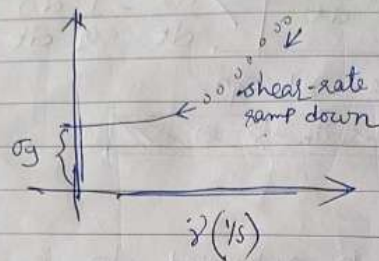 shear-rate
ramp down
σy
γ̇ (1/s)